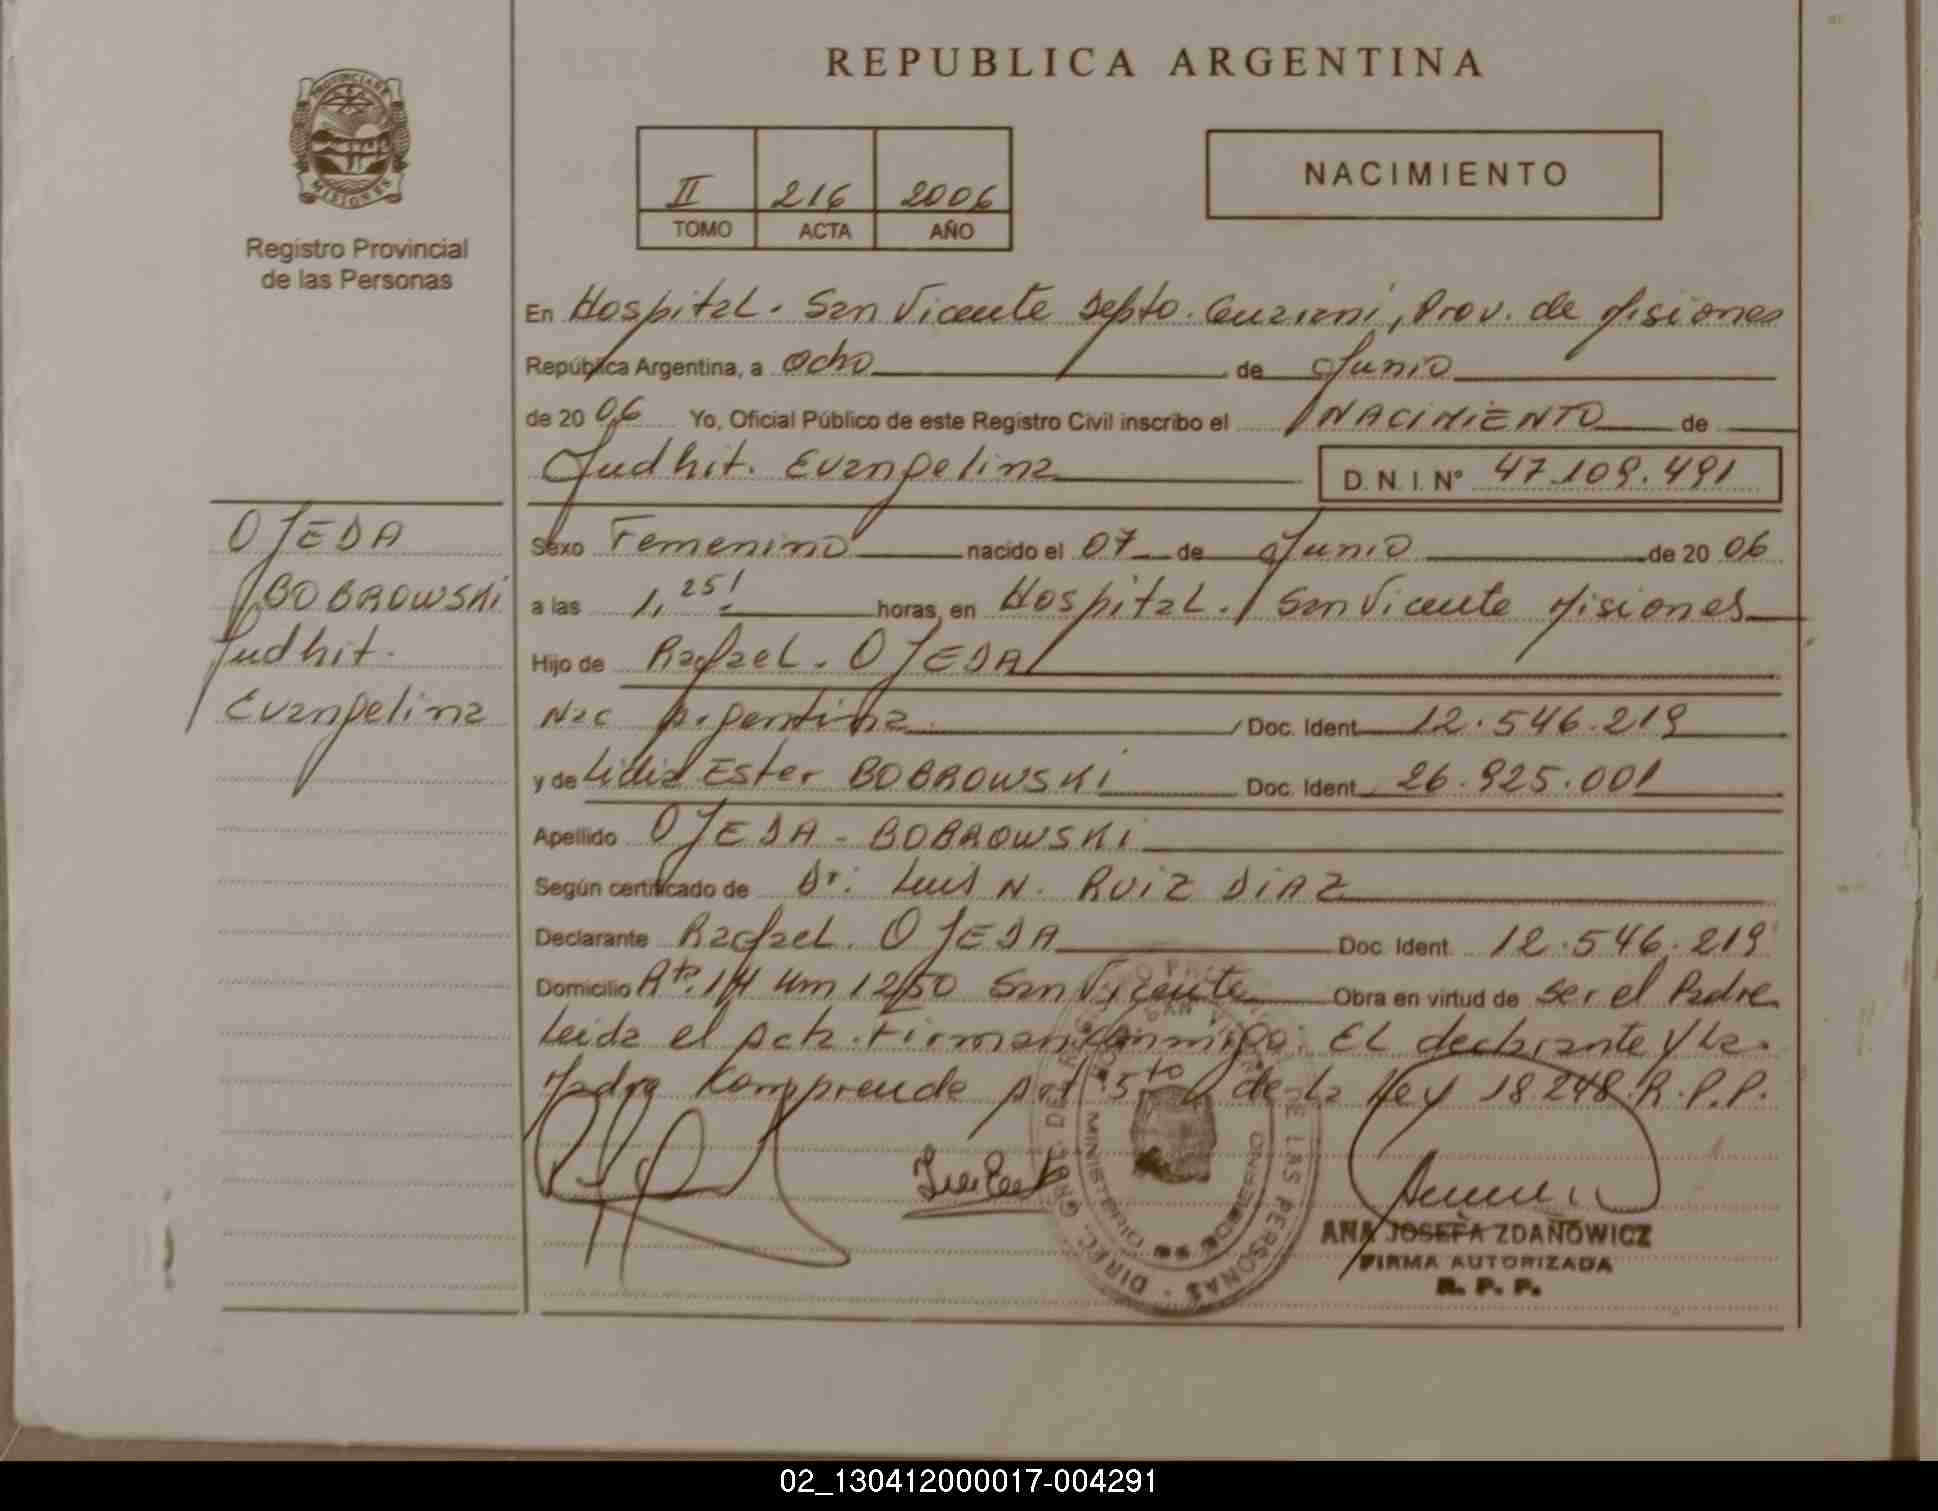 REPUBLICA ARGENTINA
PROVINCIA DE
MISIONES
Registro Provincial
de las Personas
II 216 2006
TOMO ACTA AÑO
NACIMIENTO
En Hospital. San Vicente Depto. Guarani, Prov. de Misiones
República Argentina, a Ocho de Junio
de 20 06 Yo, Oficial Público de este Registro Civil inscribo el NACIMIENTO de
Judhit. Evangelina D.N.I. Nº 47.109.491
OJEDA
BOBROWSKI
Judhit.
Evangelina
Sexo Femenino nacido el 07 de Junio de 20 06
a las 1,25' horas, en Hospital. San Vicente Misiones
Hijo de Rafael. OJEDA
Nac Argentina Doc. Ident 12.546.219
y de Lidia Ester BOBROWSKI Doc. Ident 26.925.001
Apellido OJEDA - BOBROWSKI
Según certificado de Dr: Luis N. RUIZ DIAZ
Declarante Rafael. OJEDA Doc. Ident. 12.546.219
Domicilio Rta. 14 Km 1250 San Vicente Obra en virtud de ser el Padre
Leida el Acta. Firman Conmigo: El declarante y la
Madre Comprende Art 5to de la Ley 18.248. R.P.P.
DIREC. GRAL. DE LAS PERSONAS
MINISTERIO DE GOBIERNO
ANA JOSEFA ZDANOWICZ
FIRMA AUTORIZADA
R. P. P.
02_130412000017-004291